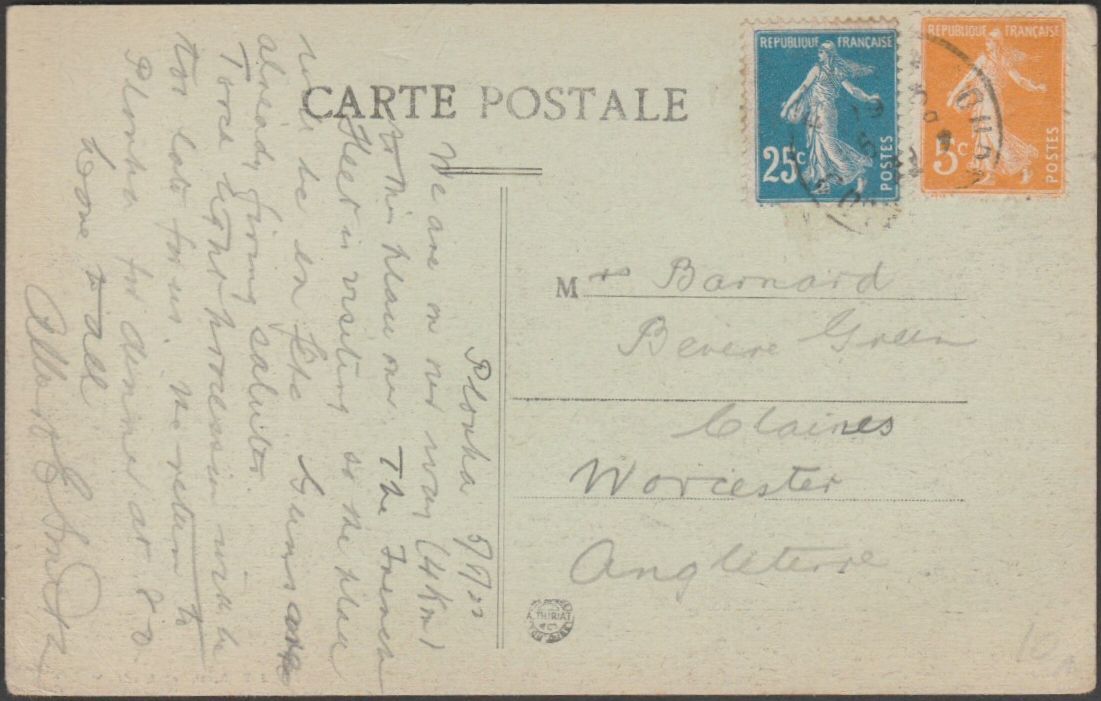 CARTE POSTALE
REPUBLIQUE FRANÇAISE
25c
POSTES
REPUBLIQUE FRANÇAISE
5c
POSTES
Plouha
We are on our way (4 Km)
to this place over. The French
Fleet is visiting so the place
will be en fête Guns are
already firing salutes.
Torch light procession will be
too late for us. We return to
Plouha for dinner at 8.0
Love to all
Mrs Barnard
Bevere Green
Claines
Worcester
Angleterre
A. THIRIAT